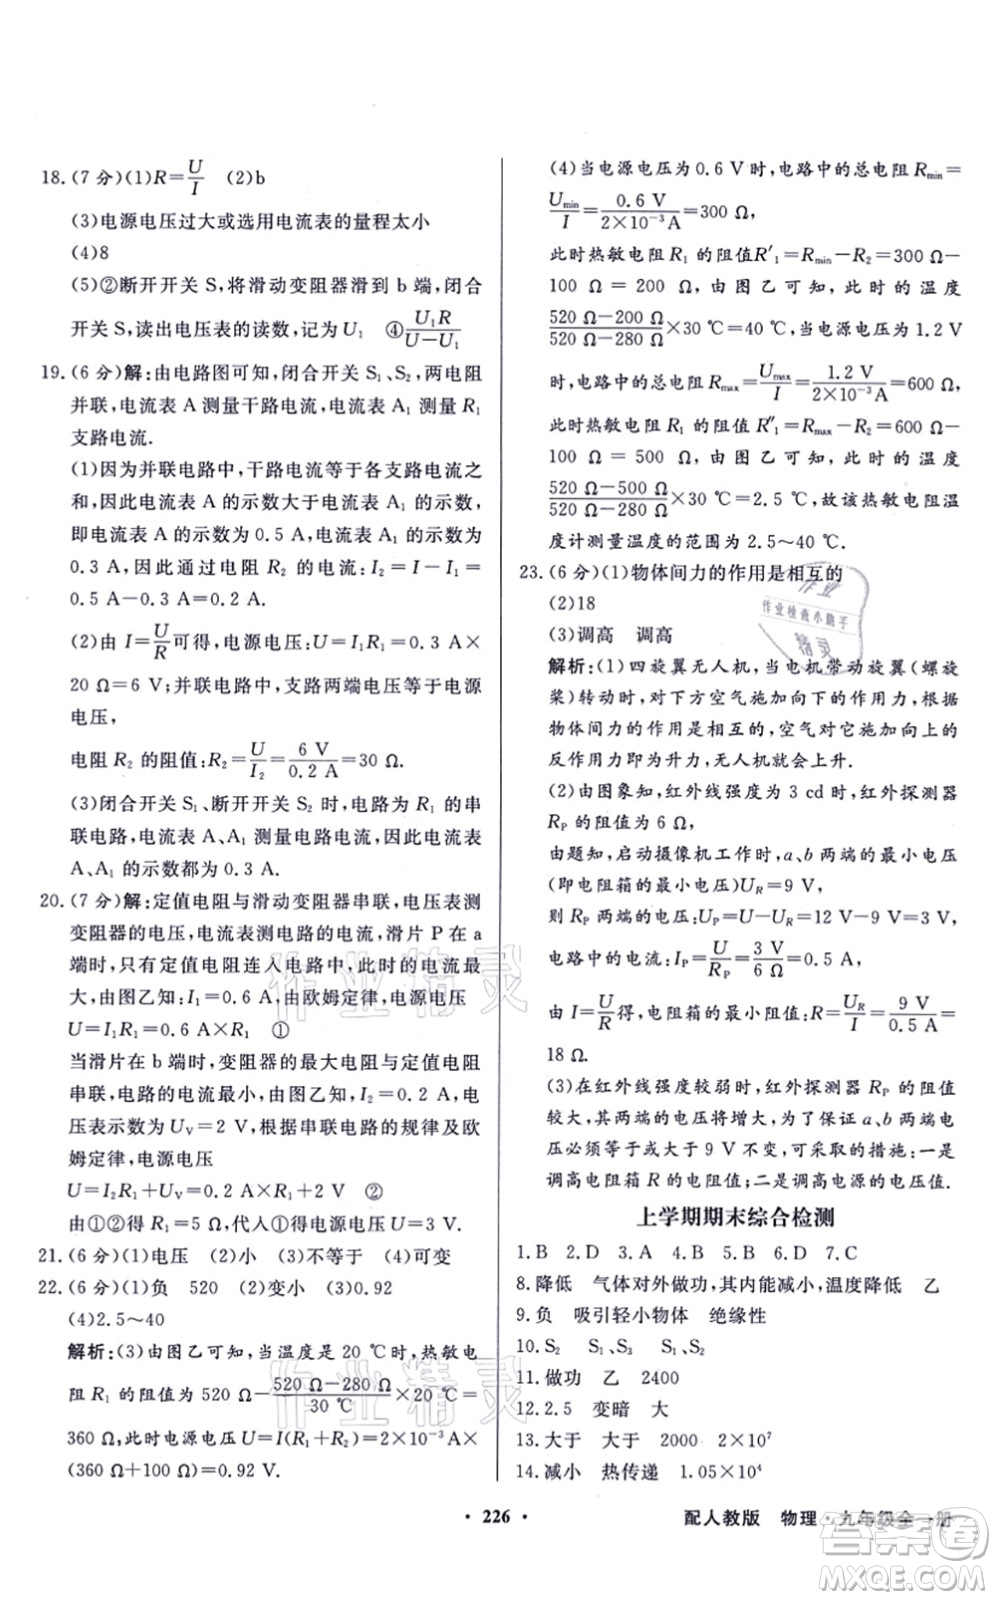 18.(7 分)(1)R=U/I (2)b
(3)电源电压过大或选用电流表的量程太小
(4)8
(5)②断开开关 S,将滑动变阻器滑到 b 端,闭合
开关 S,读出电压表的读数,记为 U₁ ④U₁R/(U−U₁)
19.(6 分)解:由电路图可知,闭合开关 S₁、S₂,两电阻
并联,电流表 A 测量干路电流,电流表 A₁ 测量 R₁
支路电流.
(1)因为并联电路中,干路电流等于各支路电流之
和,因此电流表 A 的示数大于电流表 A₁ 的示数,
即电流表 A 的示数为 0.5 A,电流表 A₁ 的示数为
0.3 A,因此通过电阻 R₂ 的电流:I₂=I−I₁=
0.5 A−0.3 A=0.2 A.
(2)由 I=U/R可得,电源电压:U=I₁R₁=0.3 A×
20 Ω=6 V;并联电路中,支路两端电压等于电源
电压,
电阻 R₂ 的阻值:R₂=U/I₂=6 V/0.2 A=30 Ω.
(3)闭合开关 S₁、断开开关 S₂ 时,电路为 R₁ 的串
联电路,电流表 A、A₁ 测量电路电流,因此电流表
A、A₁ 的示数都为 0.3 A.
20.(7 分)解:定值电阻与滑动变阻器串联,电压表测
变阻器的电压,电流表测电路的电流,滑片 P 在 a
端时,只有定值电阻连入电路中,此时的电流最
大,由图乙知:I₁=0.6 A,由欧姆定律,电源电压
U=I₁R₁=0.6 A×R₁ ①
当滑片在 b 端时,变阻器的最大电阻与定值电阻
串联,电路的电流最小,由图乙知:I₂=0.2 A,电
压表示数为 Uᵥ=2 V,根据串联电路的规律及欧
姆定律,电源电压
U=I₂R₁+Uᵥ=0.2 A×R₁+2 V ②
由①②得 R₁=5 Ω,代人①得 U=3 V.
21.(6 分)(1)电压 (2)小 (3)不等于 (4)可变
22.(6 分)(1)负 520 (2)变小 (3)0.92
(4)2.5～40
解析:(3)由图乙可知,当温度是 20 ℃时,热敏电
阻 R₁ 的阻值为 520 Ω−(520 Ω−280 Ω)/30 ℃×20 ℃=
360 Ω,此时电源电压 U=I(R₁+R₂)=2×10⁻³ A
×(360 Ω+100 Ω)=0.92 V.
(4)当电源电压为 0.6 V 时,电路中的总电阻 Rmin=
Umin/I=0.6 V/(2×10⁻³ A)=300 Ω,
此时热敏电阻 R₁ 的阻值R′₁=Rmin−R₂=300 Ω−
100 Ω=200 Ω,由图乙可知,此时的温度
(520 Ω−200 Ω)/(520 Ω−280 Ω)×30 ℃=40 ℃,当电源电压为 1.2 V
时,电路中的总电阻 Rmax=Umax/I=1.2 V/(2×10⁻³ A)=600 Ω,
此时热敏电阻 R₁ 的阻值 R″₁=Rmax−R₂=600 Ω−
100 Ω=500 Ω,由图乙可知,此时的温度
(520 Ω−500 Ω)/(520 Ω−280 Ω)×30 ℃=2.5 ℃,故该热敏电阻温
度计测量温度的范围为 2.5～40 ℃.
23.(6 分)(1)物体间力的作用是相互的
(2)18
(3)调高 调高
解析:(1)四旋翼无人机,当电机带动旋翼(螺旋
桨)转动时,对下方空气施加向下的作用力,根据
物体间力的作用是相互的,空气对它施加向上的
反作用力即为升力,无人机便可起飞.
(2)由图象知,红外线强度为 3 cd时,红外探测器
Rₚ 的阻值为 6 Ω,
由题知,启动摄像机工作时,a、b 两端的最小电压
(即电阻箱的最小电压)U_R=9 V,
则 Rₚ 两端的电压:Uₚ=U−U_R=12 V−9 V=3 V,
电路中的电流:Iₚ=U/Rₚ=3 V/6 Ω=0.5 A,
由 I=U/R得,电阻箱的阻值:R=U_R/I=9 V/0.5 A=
18 Ω.
(3)在红外线强度较弱时,红外探测器 Rₚ 的阻值
较大,其两端的电压将增大,为了保证 a、b 两端电
压必须等于或大于 9 V 不变,可采取的措施:一是
调高电阻箱 R的电阻值;二是调高电源的电压值.
上学期期末综合检测
1.B 2.D 3.A 4.B 5.B 6.D 7.C
8.降低 气体对外做功,其内能减小,温度降低 乙
9.负 吸引轻小物体 绝缘性
10.S₂ S₁ S₁
11.做功 乙 2400
12.2.5 变暗 大
13.大于 大于 2000 2×10⁷
14.减小 热传递 1.05×10⁴
• 226 •
配人教版 物理·九年级全一册
作业精灵
作业精灵
作业
作业检查小助手
精灵
答案圈
MXQE.COM